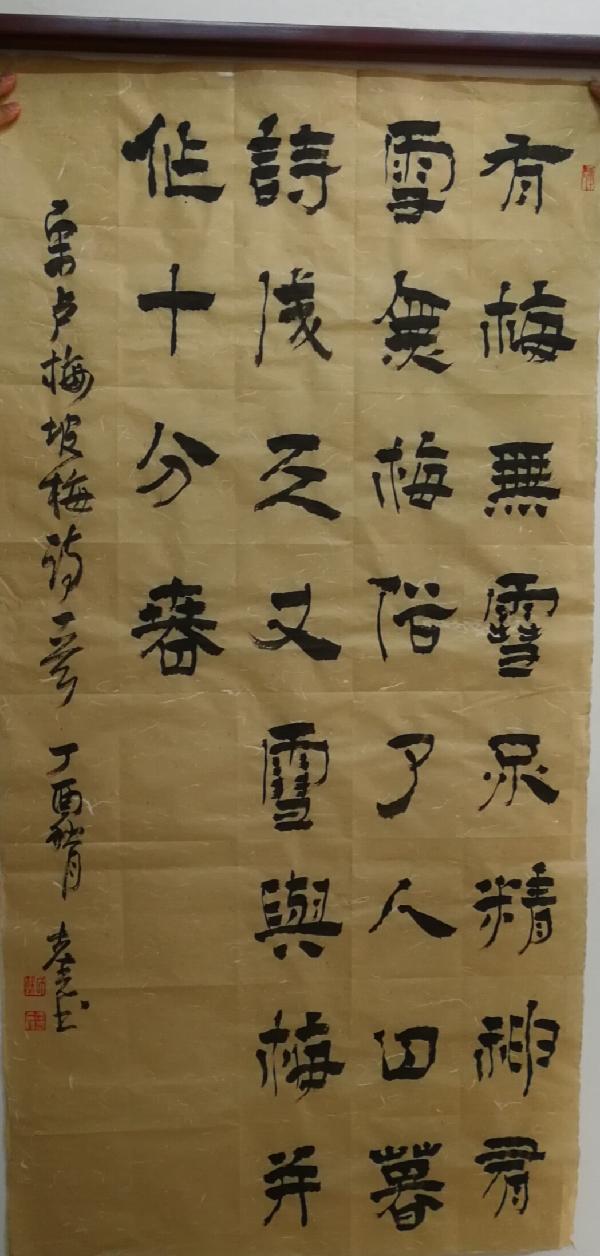 有梅無雪不精神有
雪無梅俗了人日暮
詩成天又雪與梅并
作十分春
宋卢梅坡梅诗一首 丁酉 月 书